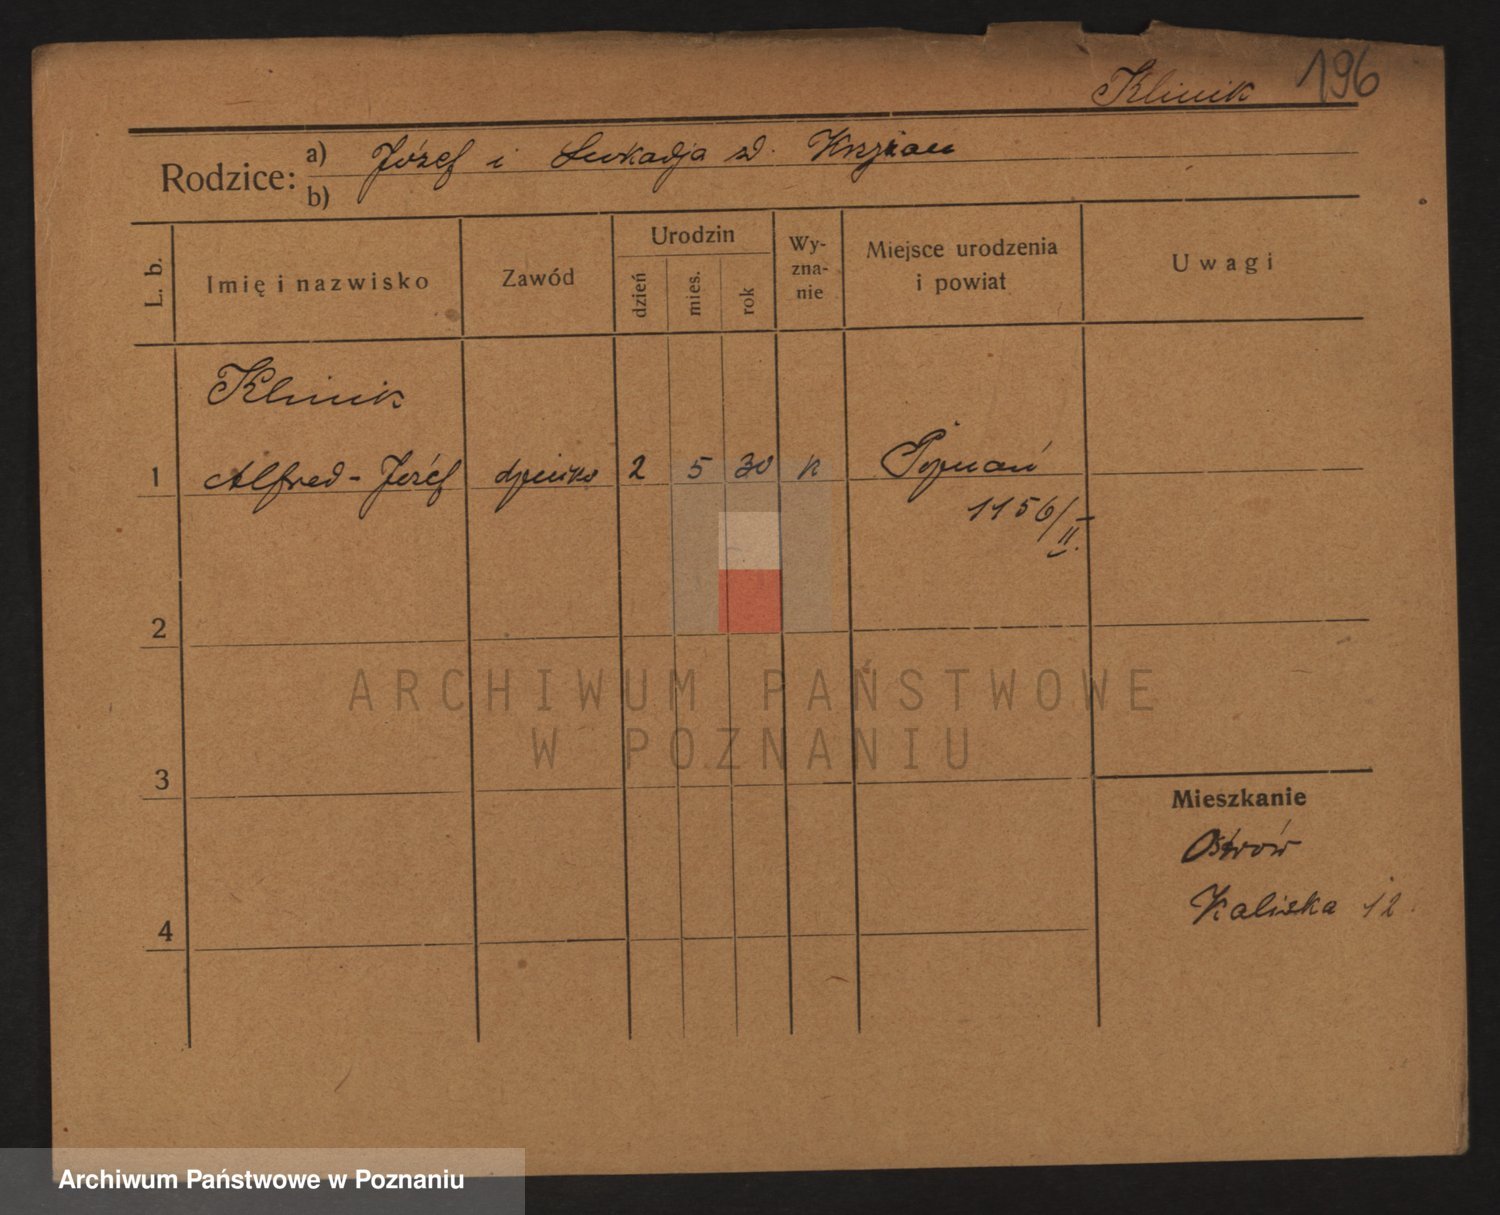 Klinik 196
Rodzice: a) Józef i Leokadja zd. Krzyżan
b)
L. b.
Imię i nazwisko
Zawód
Urodzin
dzień
mies.
rok
Wy-
zna-
nie
Miejsce urodzenia
i powiat
Uwagi
Klinik
1 Alfred-Józef dziecko 2 5 30 k Poznań
1156/II.
2
3
4
Mieszkanie
Ostrów
Kaliska 12
ARCHIWUM PAŃSTWOWE
W POZNANIU
Archiwum Państwowe w Poznaniu